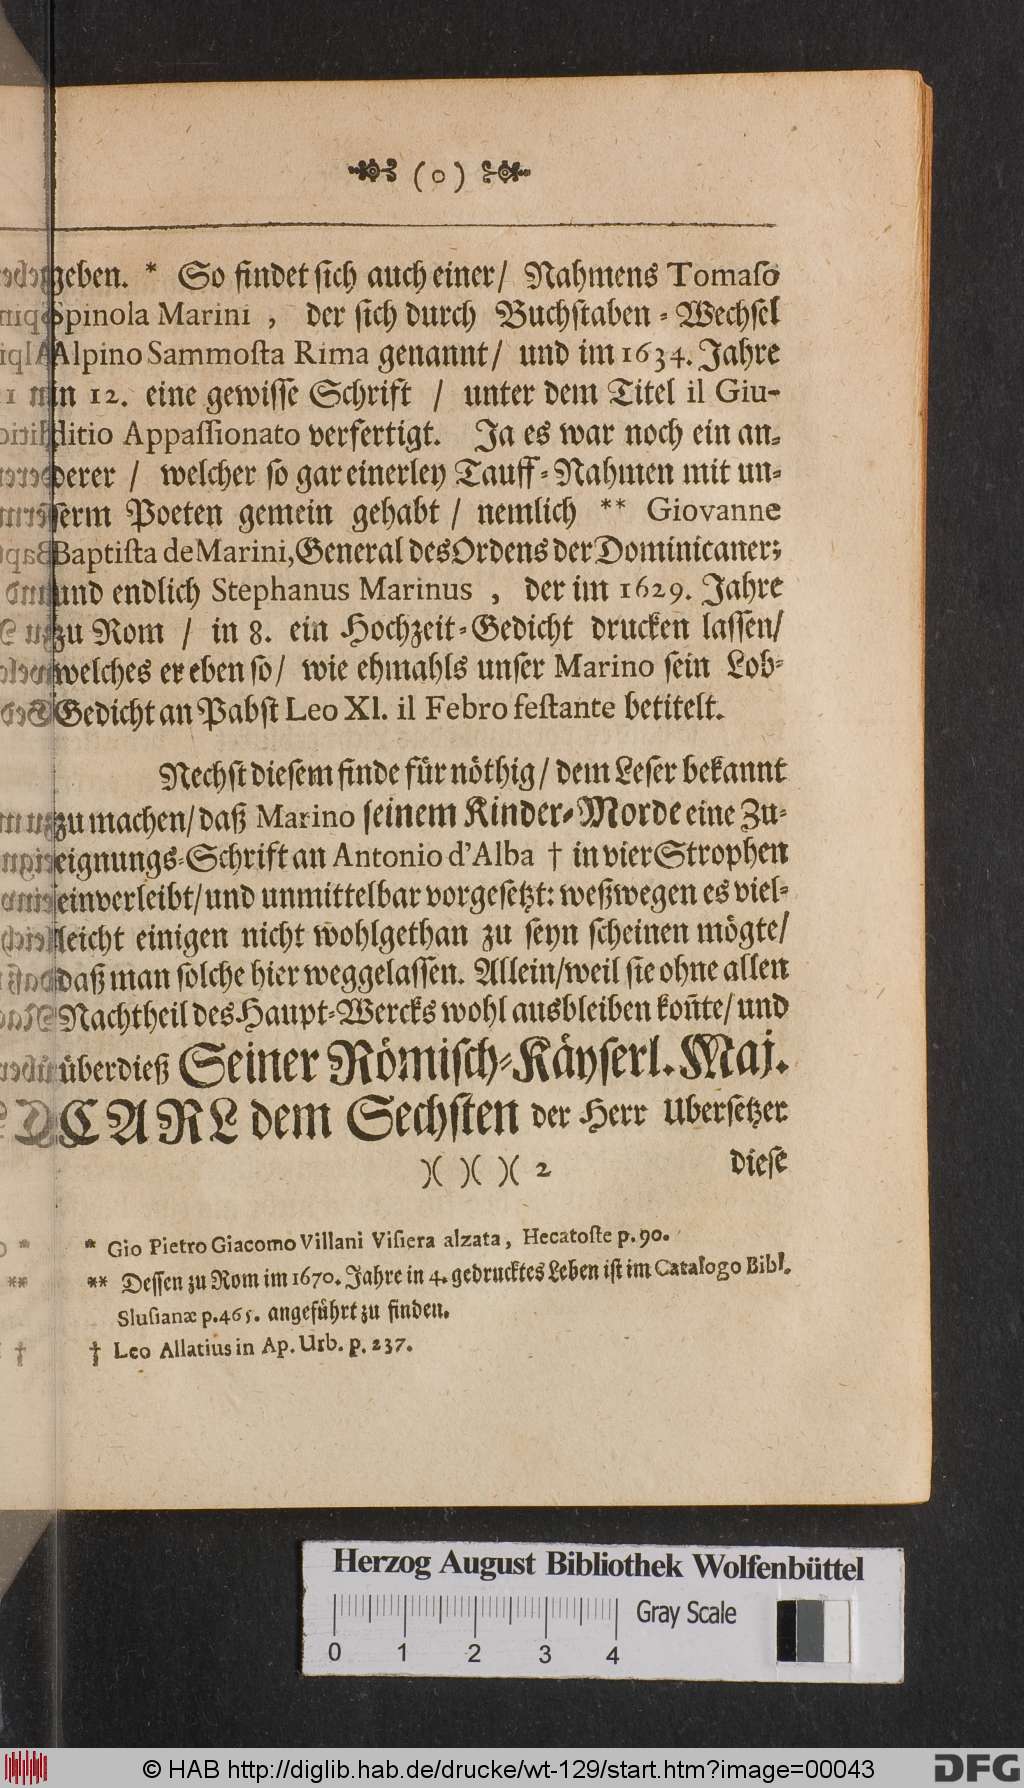 (o)
geben. * So findet sich auch einer/ Nahmens Tomaso
Spinola Marini , der sich durch Buchstaben-Wechsel
Alpino Sammosta Rima genannt/ und im 1634. Jahre
in 12. eine gewisse Schrift / unter dem Titel il Giu-
ditio Appassionato verfertigt. Ja es war noch ein an-
derer / welcher so gar einerley Tauff-Nahmen mit un-
serm Poeten gemein gehabt / nemlich ** Giovanne
Baptista de Marini, General des Ordens der Dominicaner;
und endlich Stephanus Marinus , der im 1629. Jahre
zu Rom / in 8. ein Hochzeit-Gedicht drucken lassen/
welches er eben so/ wie ehmahls unser Marino sein Lob-
Gedicht an Pabst Leo XI. il Febro festante betitelt.
Nechst diesem finde für nöthig/ dem Leser bekannt
zu machen/ daß Marino seinem Kinder-Morde eine Zu-
eignungs-Schrift an Antonio d'Alba † in vier Strophen
einverleibt/ und unmittelbar vorgesetzt: weßwegen es viel-
leicht einigen nicht wohlgethan zu seyn scheinen mögte/
daß man solche hier weggelassen. Allein/ weil sie ohne allen
Nachtheil des Haupt-Wercks wohl ausbleiben koñte/ und
überdieß Seiner Römisch-Käyserl. Maj.
CARL dem Sechsten der Herr Ubersetzer
)( )( )( 2 diese
* Gio Pietro Giacomo Villani Visiera alzata, Hecatoste p. 90.
** Dessen zu Rom im 1670. Jahre in 4. gedrucktes Leben ist im Catalogo Bibl.
Slusianæ p. 465. angeführt zu finden.
† Leo Allatius in Ap. Urb. p. 237.
Herzog August Bibliothek Wolfenbüttel
Gray Scale
0 1 2 3 4
© HAB http://diglib.hab.de/drucke/wt-129/start.htm?image=00043
DFG